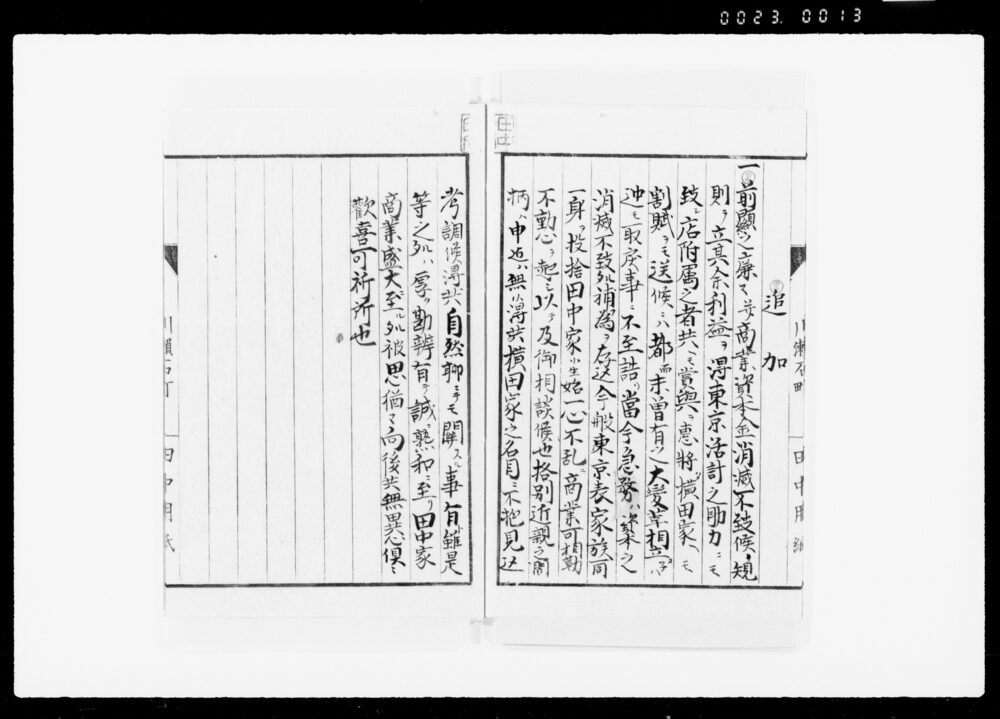 0023. 0013
追加
一前顕之廉々并商業資本金消滅不致候規
則ヲ立其余利益ヲ得東京活計之助力ニモ
致シ店附属之者共ヘモ賞與ヲ恵將横田家ヘモ
割賦ヲモ送候ハ都而未曽有之大変革相立候ハヾ
迚モ取戻事ニ不至詰リ當今急務ハ資本之
消滅不致処補為ヲ存込今般東京表家族同
一身ヲ投捨田中家ヘ始一心不乱ニ商業可相勤
不動心ヲ起シ以テ及御相談候也格別近親之間
柄ハ申迄ハ無ク得共横田家之名目ニ不抱見込
考調候得共自然聊ニテモ関スル事有雖是
等之処ハ厚勘辨有テ誠ニ熟和ニ至リ田中家
商業盛大至ル処被思猶々向後共無異心倶ニ
歓喜可祈所也
川瀬石町 田中用紙
川瀬石町 田中用紙